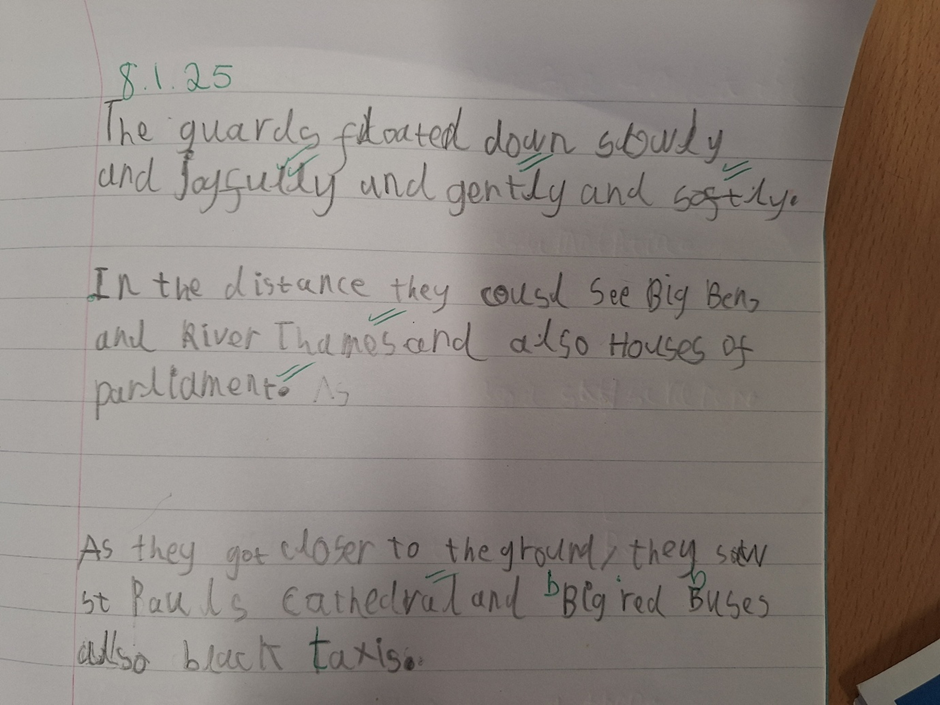 8.1.25
The guards floated down slowly
and Joyfully and gently and softly.
In the distance they cousd See Big Ben,
and River Thames and also Houses of
parliament. As
As they got closer to the ground, they saw
st Pauls Cathedral and bBig red bBuses
also black taxis.